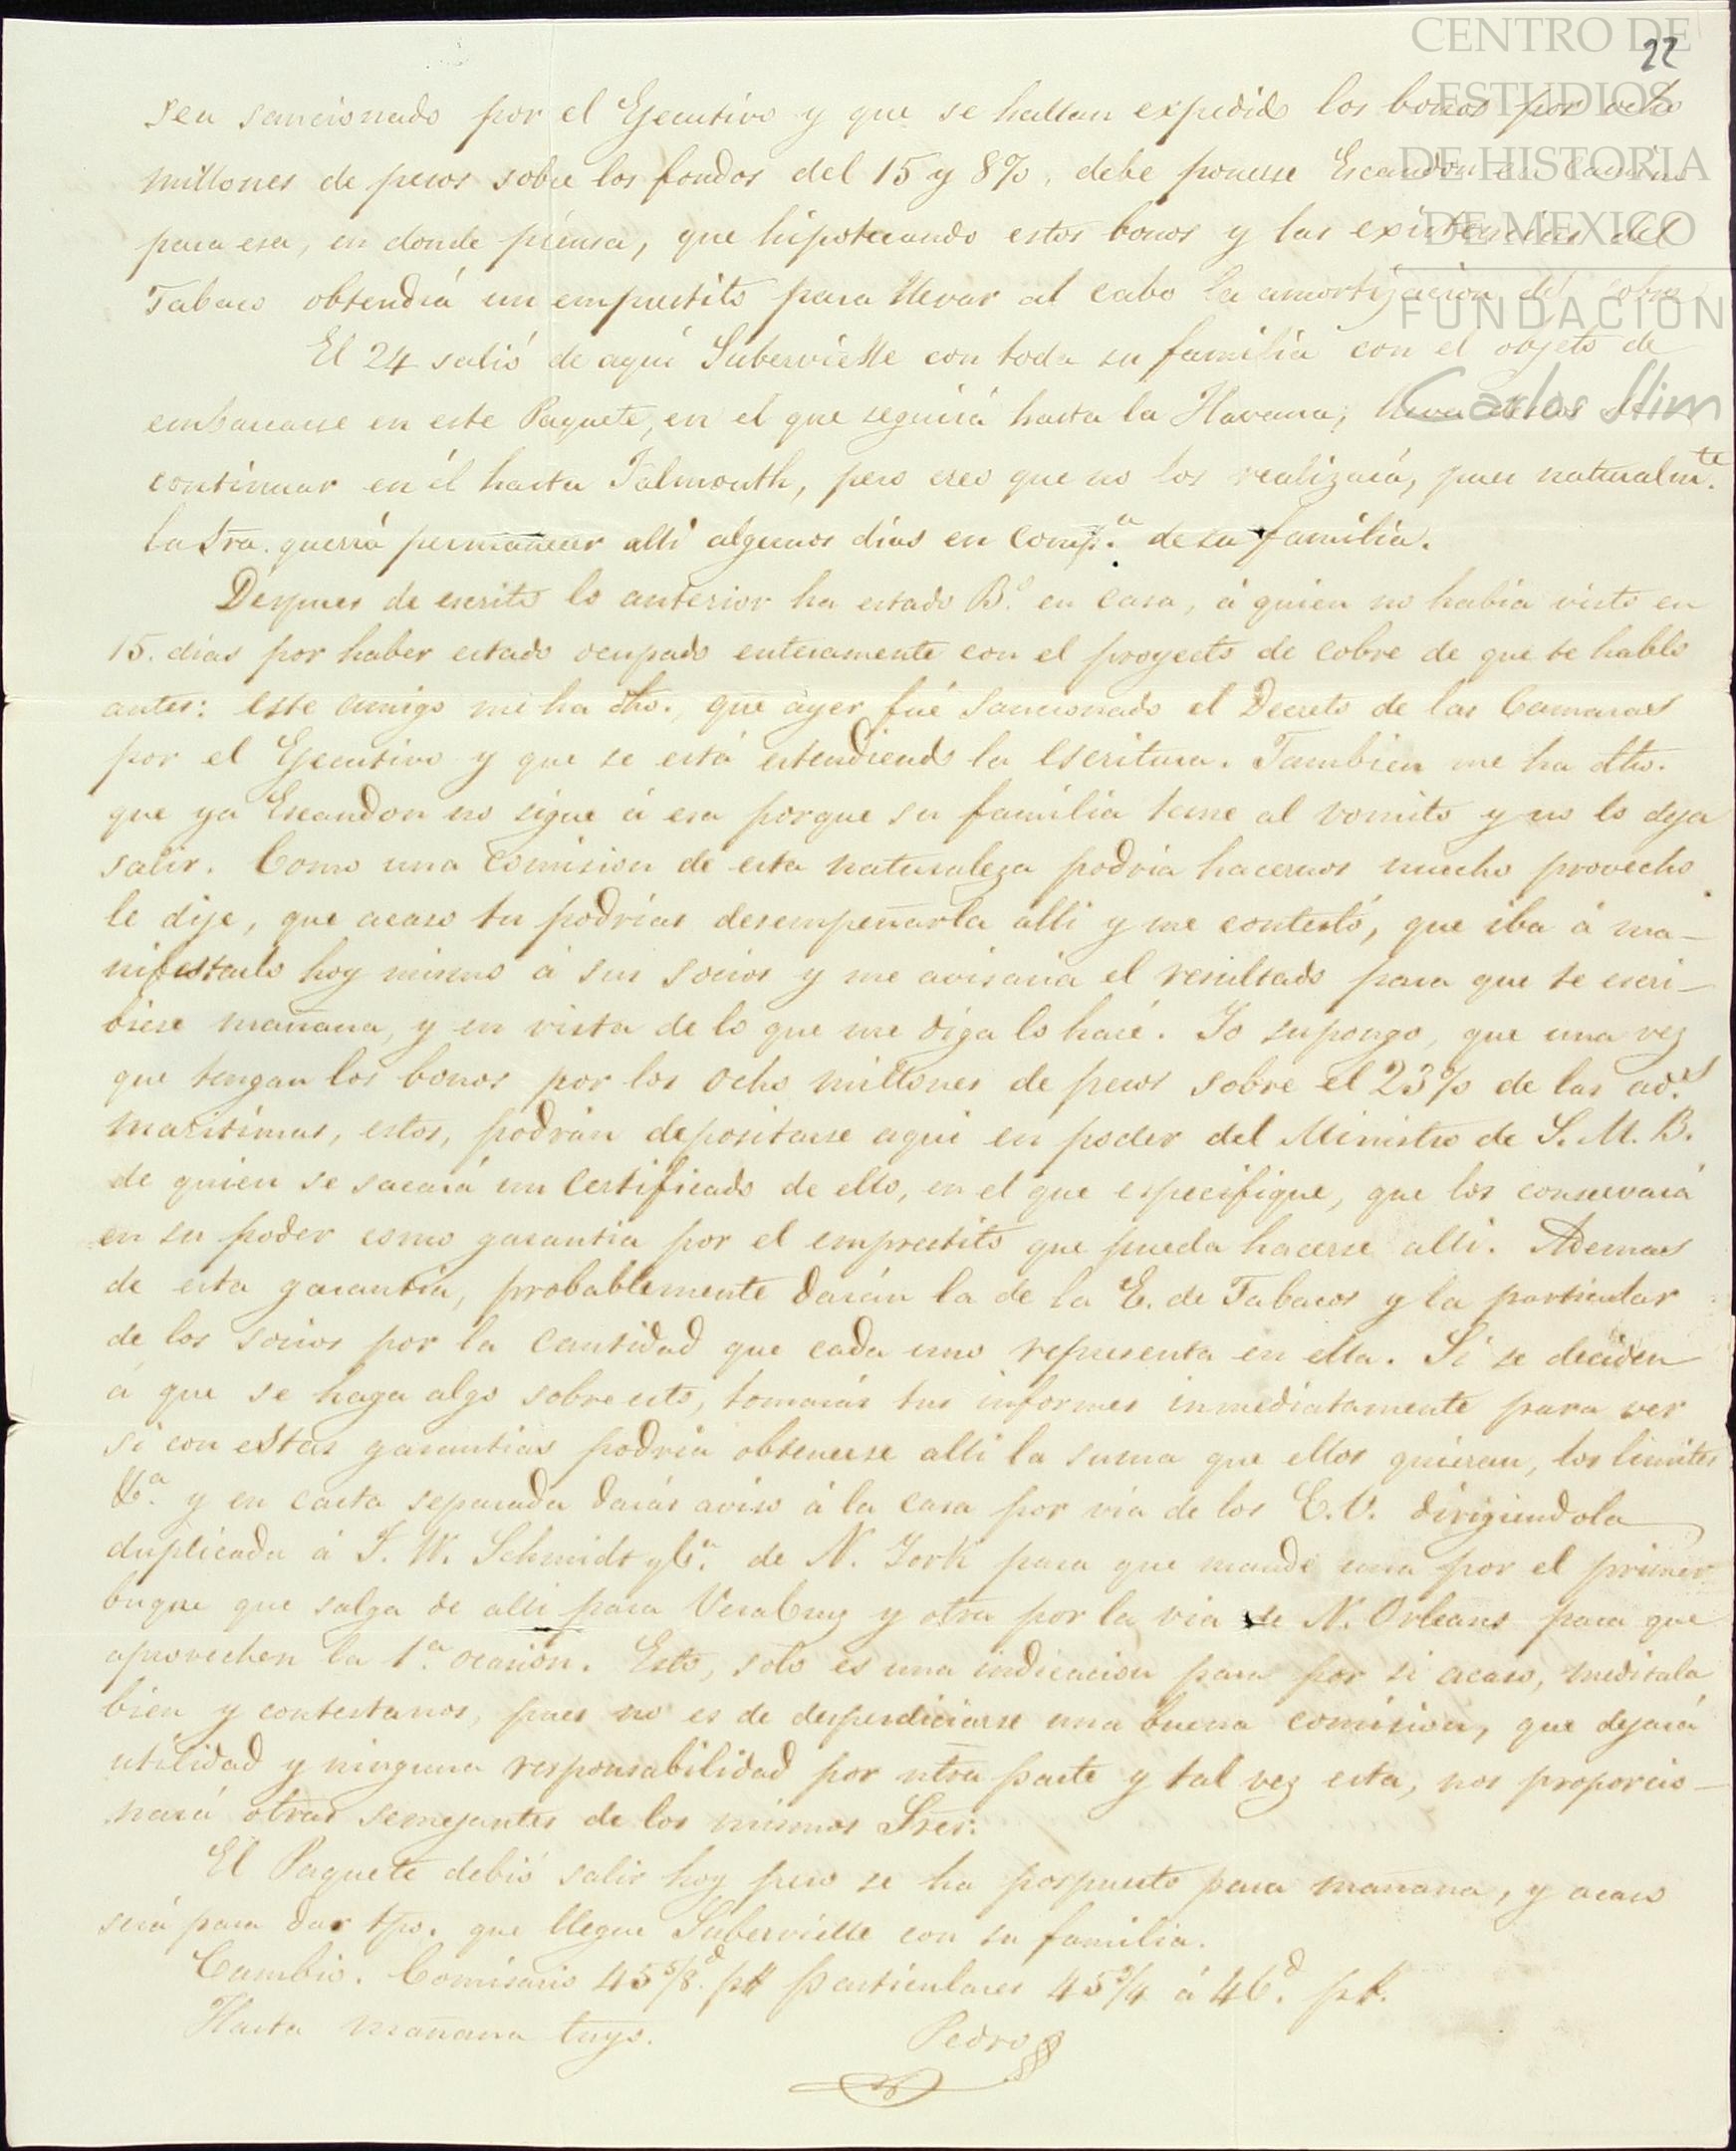 CENTRO DE
ESTUDIOS
DE HISTORIA
DE MEXICO
FUNDACION
Carlos Slim
22
sea sancionado por el Ejecutivo y que se hallan expedido los bonos por ocho
millones de pesos sobre los fondos del 15 y 8%, debe ponerse Escandon en camino
para esa, en donde piensa, que hipotecando estos bonos y las existencias del
Tabaco obtendrá un emprestito para llevar al cabo la amortizacion del cobre.
El 24 salió de aqui Subervielle con toda su familia con el objeto de
embarcarse en este Paquete, en el que seguirá hasta la Havana; lleva deseos de
continuar en él hasta Falmouth, pero creo que no los realizará, pues naturalm.te
la Sra. querrá permanecer alli algunos dias en comp.a de su familia.
Despues de escrito lo anterior ha estado B.o en casa, á quien no habia visto en
15. dias por haber estado ocupado enteramente con el proyecto de cobre de que te hablo
antes: este amigo me ha dho., que ayer fué sancionado el Decreto de las Camaras
por el Ejecutivo y que se está estendiendo la Escritura. Tambien me ha dho.
que ya Escandon no sigue á esa porque su familia teme al vomito y no lo deja
salir. Como una comision de esta naturaleza podria hacernos mucho provecho
le dije, que acaso tu podrias desempeñarla alli y me contestó, que iba á ma-
nifestarlo hoy mismo á sus socios y me avisaria el resultado para que te escri-
biese mañana, y en vista de lo que me diga lo haré. Yo supongo, que una vez
que tengan los bonos por los ocho millones de pesos sobre el 23% de las ad.s
maritimas, estos, podrán depositarse aqui en poder del Ministro de S. M. B.
de quien se sacará un certificado de ello, en el que especifique, que los conservará
en su poder como garantia por el emprestito que pueda hacerse alli. Ademas
de esta garantia, probablemente darán la de la E. de Tabacos y la particular
de los socios por la cantidad que cada uno representa en ella. Si se deciden
á que se haga algo sobre esto, tomarás tus informes inmediatamente para ver
si con estas garantias podria obtenerse alli la suma que ellos quieran, los limites
&.a y en carta separada darás aviso á la casa por via de los E. U. dirigiendola
duplicada á J. W. Schmidt y C.a de N. York para que mande una por el primer
buque que salga de alli para VeraCruz y otra por la via de N. Orleans para que
aprovechen la 1.a ocasion. Esto, solo es una indicacion para por si acaso, meditala
bien y contestanos, pues no es de desperdiciarse una buena comision, que dejará
utilidad y ninguna responsabilidad por ntra parte y tal vez esta, nos proporcio-
nará otras semejantes de los mismos Sres.
El Paquete debió salir hoy pero se ha pospuesto para mañana, y acaso
será para dar tpo. que llegue Subervielle con su familia.
Cambio. Comisario 45 5/8 d. p$ particulares 45 3/4 á 46 d. p$.
Hasta mañana tuyo.
Pedro